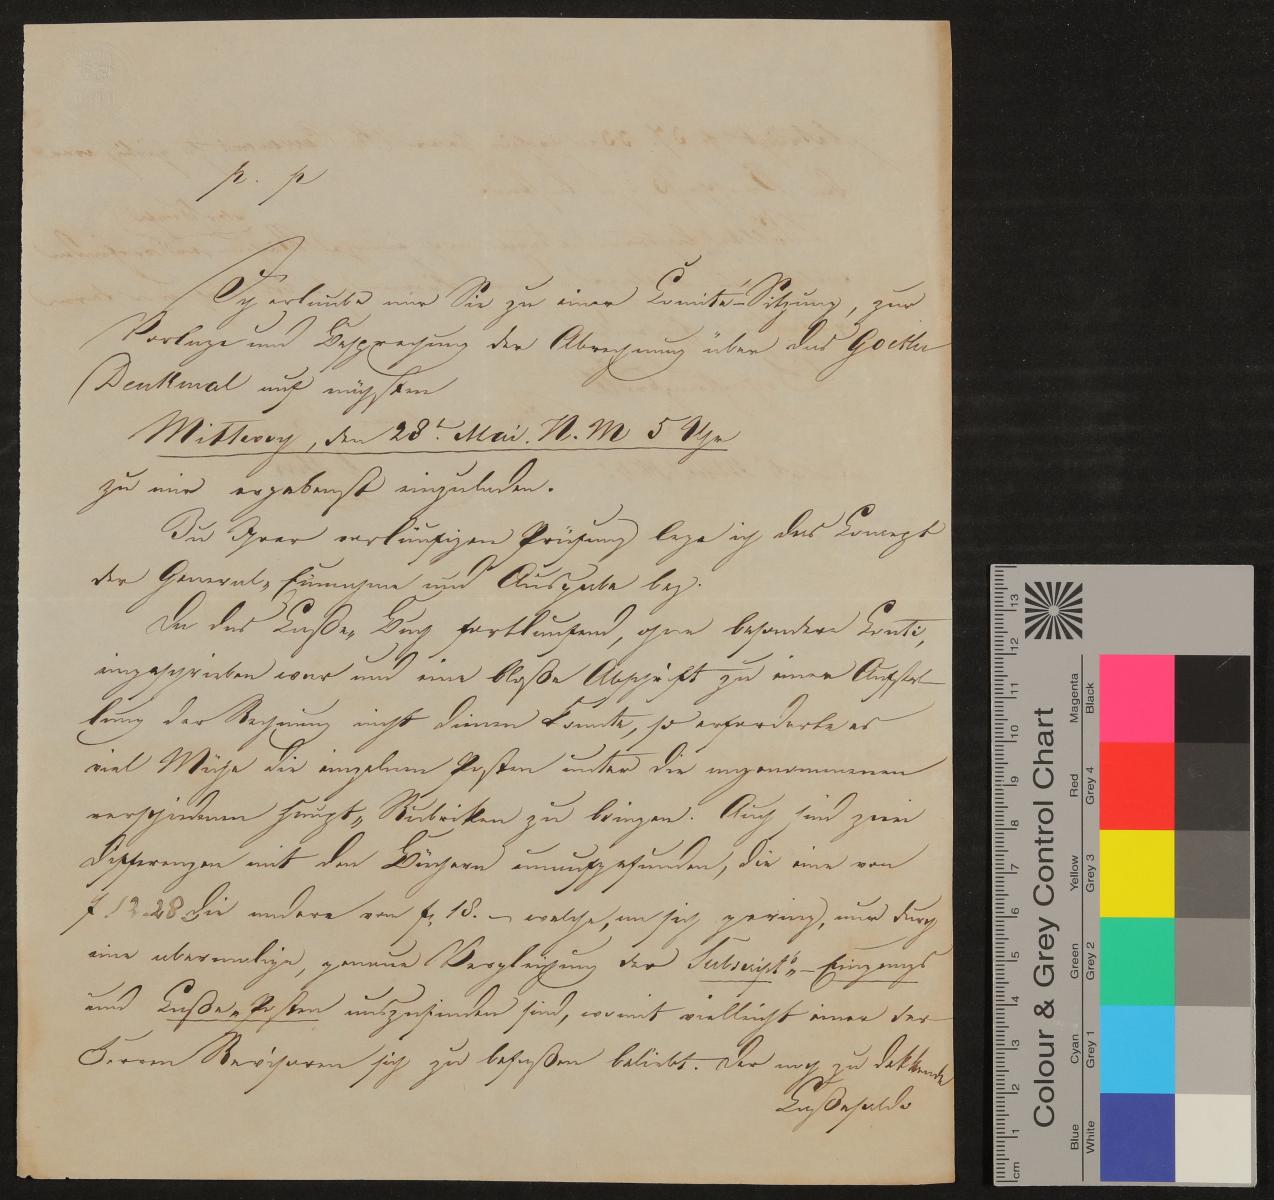 p. p
Ich erlaube mir Sie zu einer Comité-Sitzung, zur
Vorlage und Besprechung der Abrechnung über das Goethe
Denkmal auf nächsten
Mittwoch, den 28t. Mai. N. M 5 Uhr
zu mir ergebenst einzuladen.
Zu Ihrer vorläufigen Prüfung lege ich das Concept
der General-Einnahme und Ausgabe bey.
Da das Cassa-Buch fortlaufend, ohne besondere Conti,
eingeschrieben war und eine bloße Abschrift zu einer Aufstel-
lung der Rechnung nicht dienen konnte, so erforderte es
viel Mühe die einzelnen Posten unter die angenommenen
verschiedenen Haupt-Rubriken zu bringen. Auch sind zwei
Differenzen mit den Büchern unaufgefunden, die eine von
f 12.28 die andere von f. 18. – welche, an sich gering, nur durch
eine abermalige, genaue Vergleichung der Subscript.-Eingangs
und Cassa-Posten auszufinden sind, womit vielleicht einer der
Herren Revisoren sich zu befaßen beliebt. Der noch zu dekkende
Cassasaldo
Colour & Grey Control Chart
Blue Cyan Green Yellow Red Magenta
White Grey 1 Grey 2 Grey 3 Grey 4 Black
cm 1 2 3 4 5 6 7 8 9 10 11 12 13